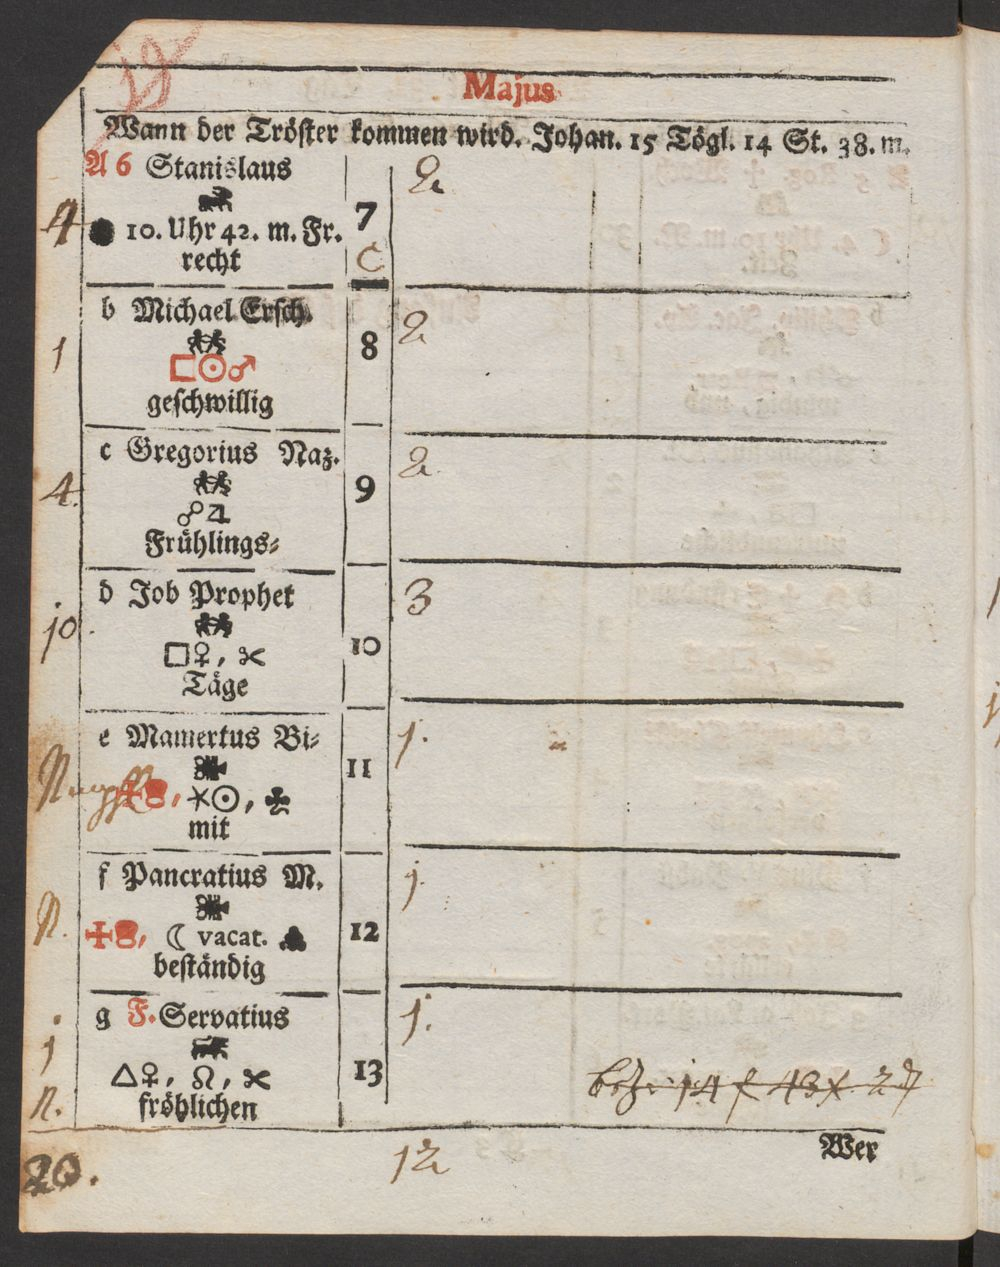 19
Majus
Wann der Tröster kommen wird. Johan. 15 Tögl. 14 St. 38. m.
A 6 Stanislaus
4 ● 10. Uhr 42. m. Fr. 7 2
recht C
b Michael Ersch.
1 □☉♂ 8 2
geschwillig
c Gregorius Naz.
4. ☍♃ 9 2
Frühlings⸗
d Job Prophet 3
10. □♀, ✂ 10
Täge
e Mamertus Bi⸗ 1.
✠, ⚹☉, ♣ 11
mit
f Pancratius M. 1.
N. ✠, ☾ vacat. 12
beständig
g F. Servatius 1.
1 △♀, ☊, ✂ 13
n. fröhlichen
14 f 43 x 27
Wer
20. 12